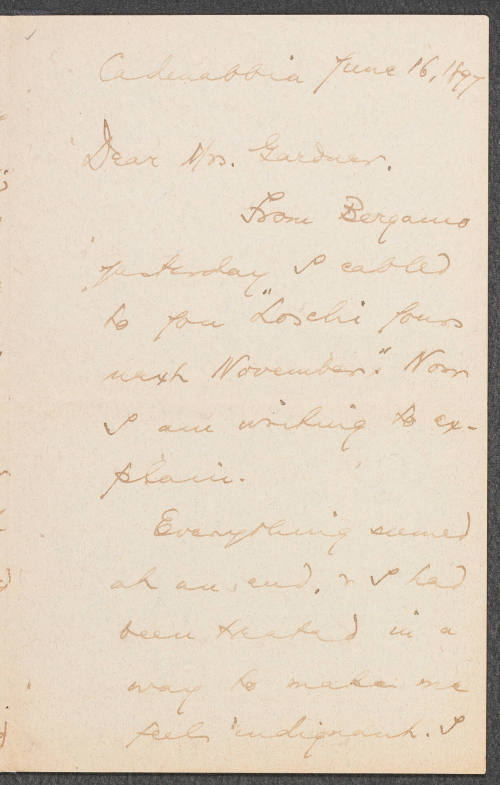 Cadenabbia June 16, 1897
Dear Mrs. Gardner.
From Bergamo
yesterday I cabled
to you "Loschi yours
next November." Now
I am writing to ex-
plain.
Everything seemed
at an end, & I had
been treated in a
way to make me
feel indignant. I